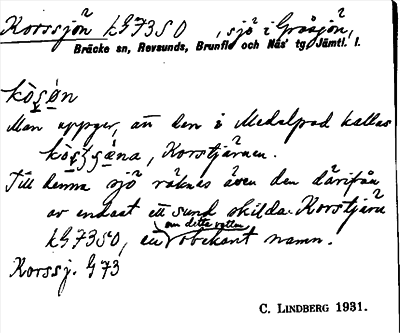 Korssjön LG73SO, sjö i Gråsjön,
Bräcke sn, Revsunds, Brunflo och Näs' tg Jämtl. l.
kò̀ṣøn
Man uppger, att den i Medelpad kallas
Korstjärnen.
Till denna sjö räknas även den därifrån
av endast ett sund skilda Korstjärn
LG73SO, en om detta vatten obekant namn.
Korssj. G73
C. LINDBERG 1931.